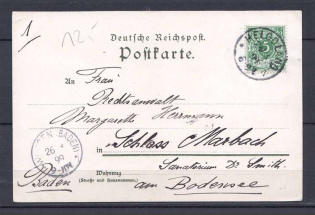 1
12.-
Deutsche Reichspost.
Postkarte.
HELGOLAND
An Frau
Rechtsanwalt
Margarethe Herrmann
in Schloss Marbach
Sanatorium Dr Smith.
Wohnung
(Straße und Hausnummer)
Baden am Bodensee
BADEN
26
99